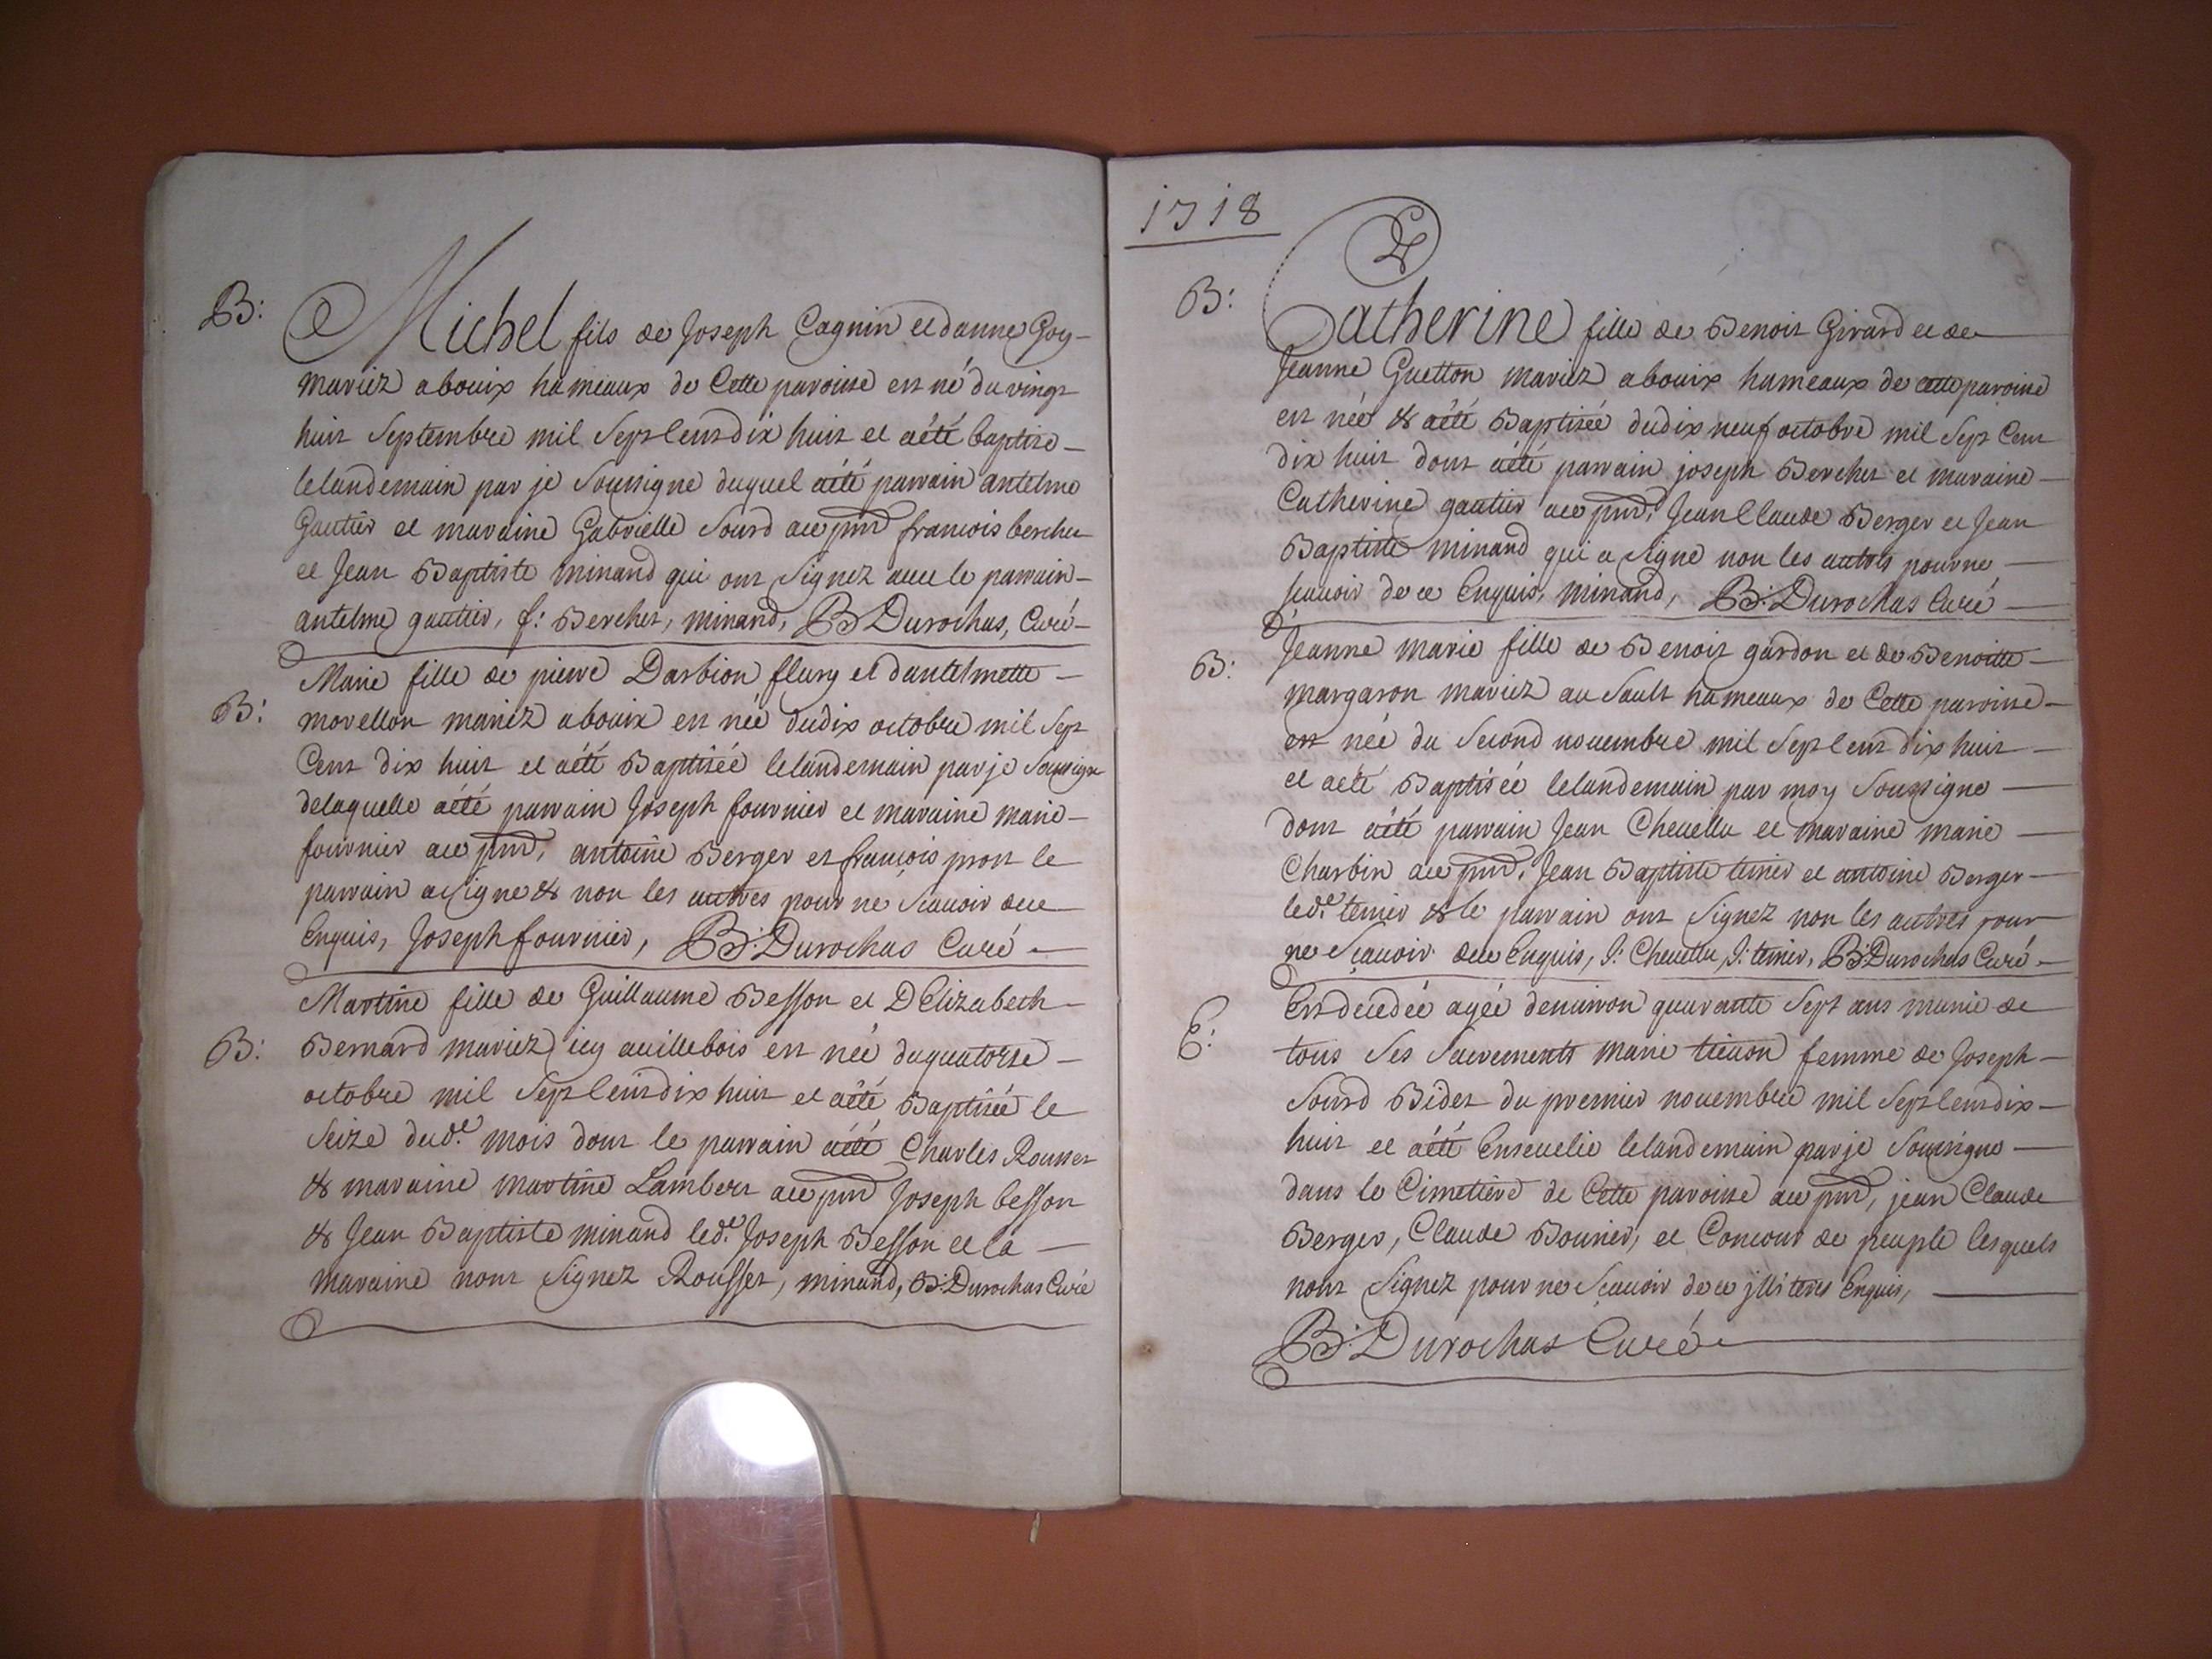 B:
Michel fils de Joseph Cagnin et danne Goy-
mariez abouix hameaux de Cette paroisse est né du vingt
huit Septembre mil Sept Cent dix huit et aété baptisé-
lelandemain par je Soussigne duquel aété parrain antelme
Gautier et maraine Gabrielle Sourd ace pnt francois berchet
et Jean Baptiste minand qui ont Signez avec le parrain-
antelme gautier, f: Berchet, minand, B: Durochas, Curé-
B:
Marie fille de pierre Darbion fleury et dantelmette-
morellon mariez abouix est née du dix octobre mil Sept
Cent dix huit et aété Baptisée lelandemain par je Soussigne
delaquelle aété parrain Joseph fournier et maraine marie-
fournier ace pnt, antoine Berger et francois prost le
parrain a Signe & non les autres pour ne Sçauoir de ce
Enquis, Joseph fournier, B: Durochas Curé-
B:
Martine fille de Guillaume Besson et DElizabeth-
Bernard mariez icy auillebois est née du quatorse-
octobre mil Sept Cent dix huit et aété Baptisée le
Seize dud.t mois dont le parrain aété Charles Rousset
& maraine martine Lambert ace pnt Joseph besson
& Jean Baptiste minand led.t Joseph Besson et la-
maraine nont Signez Rousset, minand, B: Durochas Curé
1718
B:
Catherine fille de Benoit Girard et de
Jeanne Guetton mariez abouix hameaux de cette paroisse
est née & aété Baptisée du dix neuf octobre mil Sept Cent
dix huit dont aété parrain joseph Berchet et maraine-
Catherine gautier ace pnt, Jean Claude Berger et Jean
Baptiste minand qui a Signe non les autres pour ne-
scauoir de ce Enquis, minand, B: Durochas Curé-
B:
Jeanne marie fille de Benoit gardon et de Benoitte-
margaron mariez au Sault hameaux de Cette paroisse-
est née du Second nouembre mil Sept Cent dix huit-
et aété Baptisée lelandemain par moy Soussigne-
dont aété parrain Jean Cheuellu et maraine marie-
Charbin ace pnt, Jean Baptiste teruier et antoine Berger-
led.t teruier & le parrain ont Signez non les autres pour
ne Sçauoir de ce Enquis, J: Cheuellu, J: teruier, B: Durochas Curé-
E:
Est décedée agée denuiron quarante Sept ans munie de
tous Ses Sacrements marie tieuon femme de Joseph-
Sourd Bidet du premier nouembre mil Sept Cent dix-
huit et aété Enseuelie lelandemain par je Soussigne-
dans le Cimetière de Cette paroisse ace pnt, jean Claude
Berger, Claude Bouuier, et Concour de peuple lesquels
nont Signez pour ne Sçauoir de ce jlliterés Enquis,
B: Durochas Curé